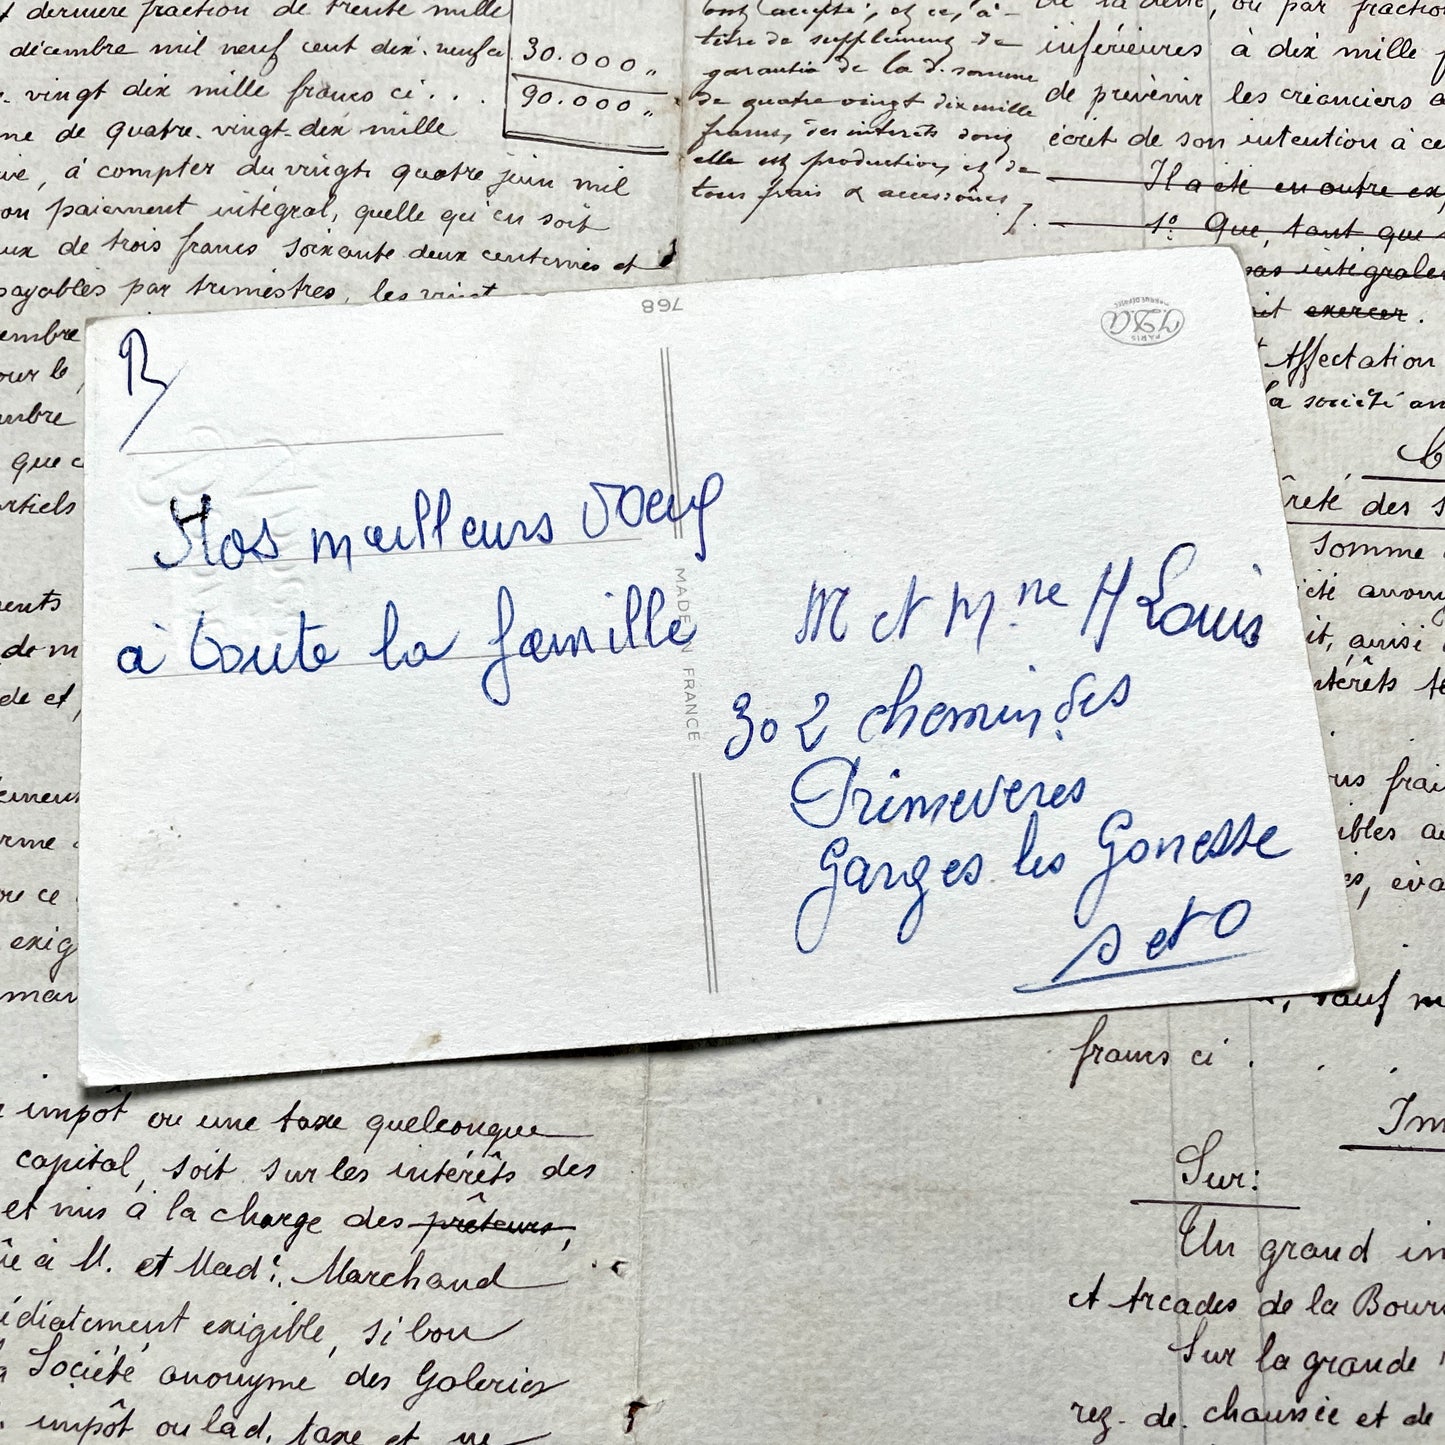 t derniere fraction de trente mille
décembre mil neuf cent dix-neuf ci
30.000 "
vingt dix mille francs ci . . .
90.000 "
me de quatre-vingt-dix mille
à compter du vingt quatre juin mil
on paiement intégral, quelle qu'en soit
ux de trois francs soixante deux centimes et
payables par trimestres, les vingt
embre
our le
mbre
que c
artiels
titre de supplément de
garantie de la d. somme
de quatre vingt dix mille
francs, des intérêts dont
elle est productive, et de
tous frais & accessoires
de la dette, ou par fraction
inférieures à dix mille f
de prévenir les créanciers a
écrit de son intention à ce
Il a été en outre ex
1º Que, tant que
pas intégrale
ait exercer.
Affectation
la société an
reté des s
somme
ciété anony
it, ainsi
ntérêts
768
JDA
PARIS
R/
Nos meilleurs voeux
à toute la famille
MADE IN FRANCE
M et Mme H Louis
302 chemin des
Primeveres
Garges les Gonesse
S et O
ents
de m
de et,
exig
ous frai
ibles au
sauf m
francs ci . . .
impôt ou une taxe quelconque
capital, soit sur les intérêts des
et mis à la charge des prêteurs,
à M. et Made. Marchand
édiatement exigible, si bon
a Société anonyme des Galeries
impôt ou lad. taxe et
Im
Sur:
Un grand im
et Arcades de la Bour
Sur la grande
rez-de-chaussée et de